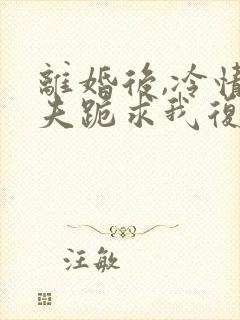 離婚後,冷情
夫跪求我復
汪敏